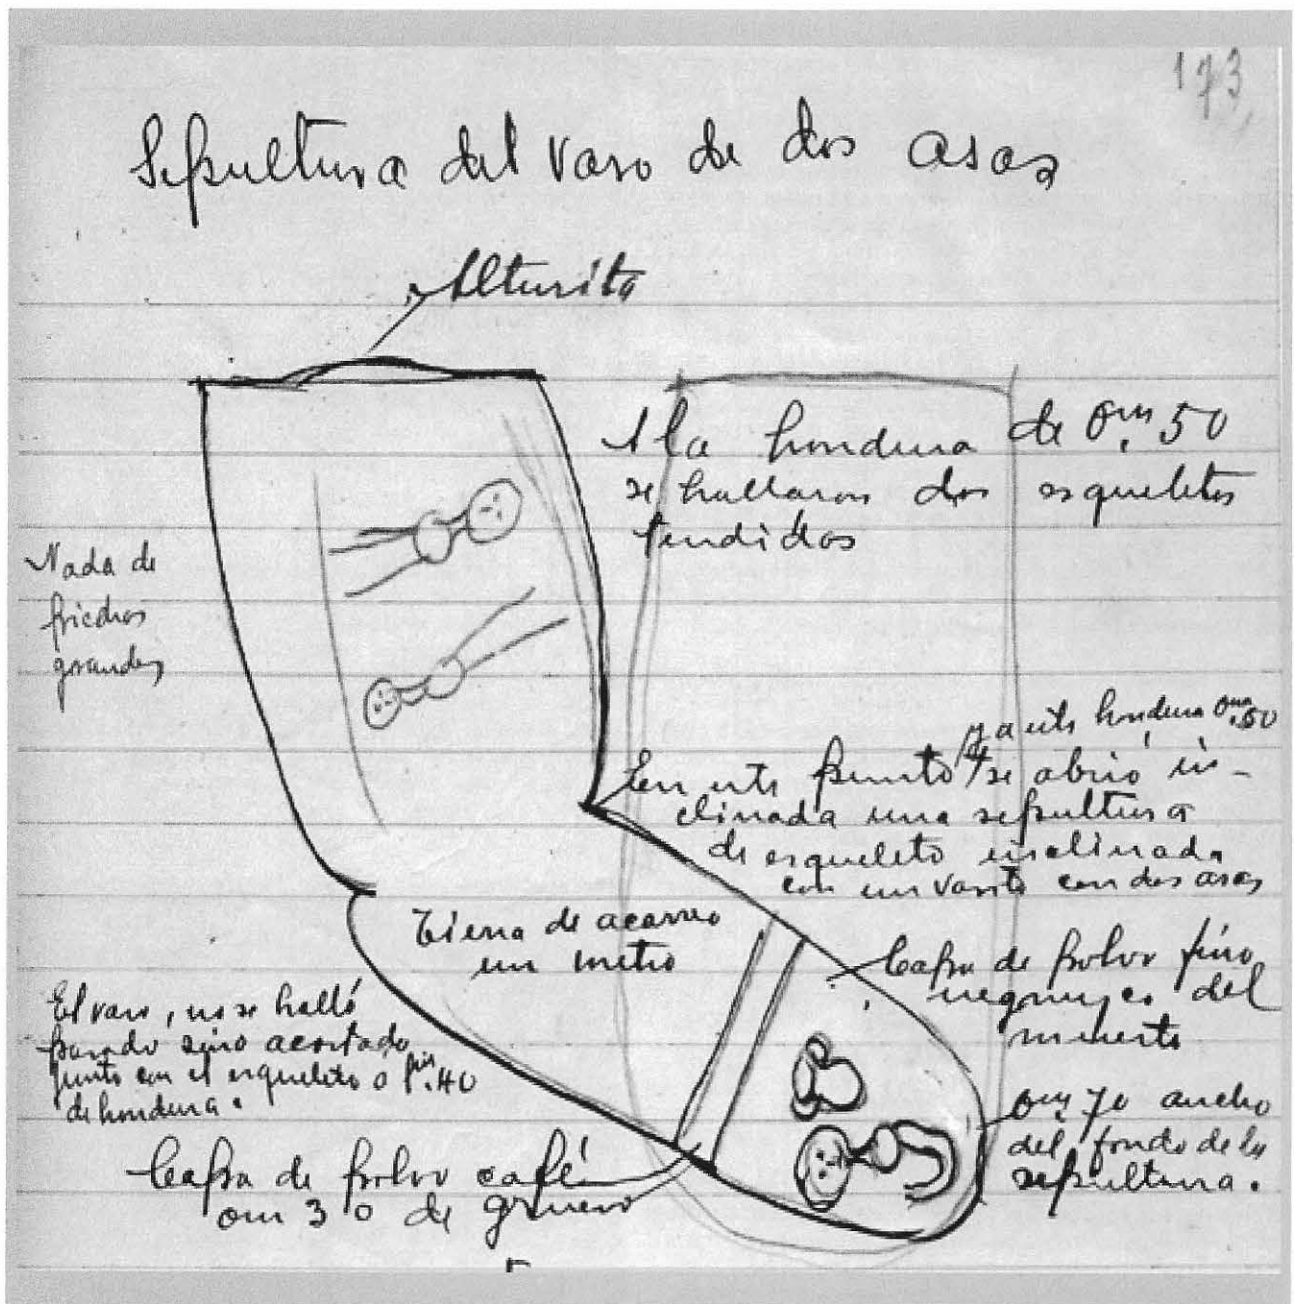 173
Sepultura del vaso de dos asas
Alturita
A la hondura de 0m.50
se hallaron dos esqueletos
tendidos
Nada de
piedras
grandes
y a esta hondura 0m.50
En este punto se abrió in-
clinada una sepultura
de esqueleto inclinada
con un vasito con dos asas
Tierra de acarreo
un metro
Capa de polvo fino
negruzco del
muerto
El vaso, no se halló
parado sino acostado
junto con el esqueleto a 1m.40
de hondura.
0m 70 ancho
del fondo de la
sepultura.
Capa de polvo café
0m 30 de grueso